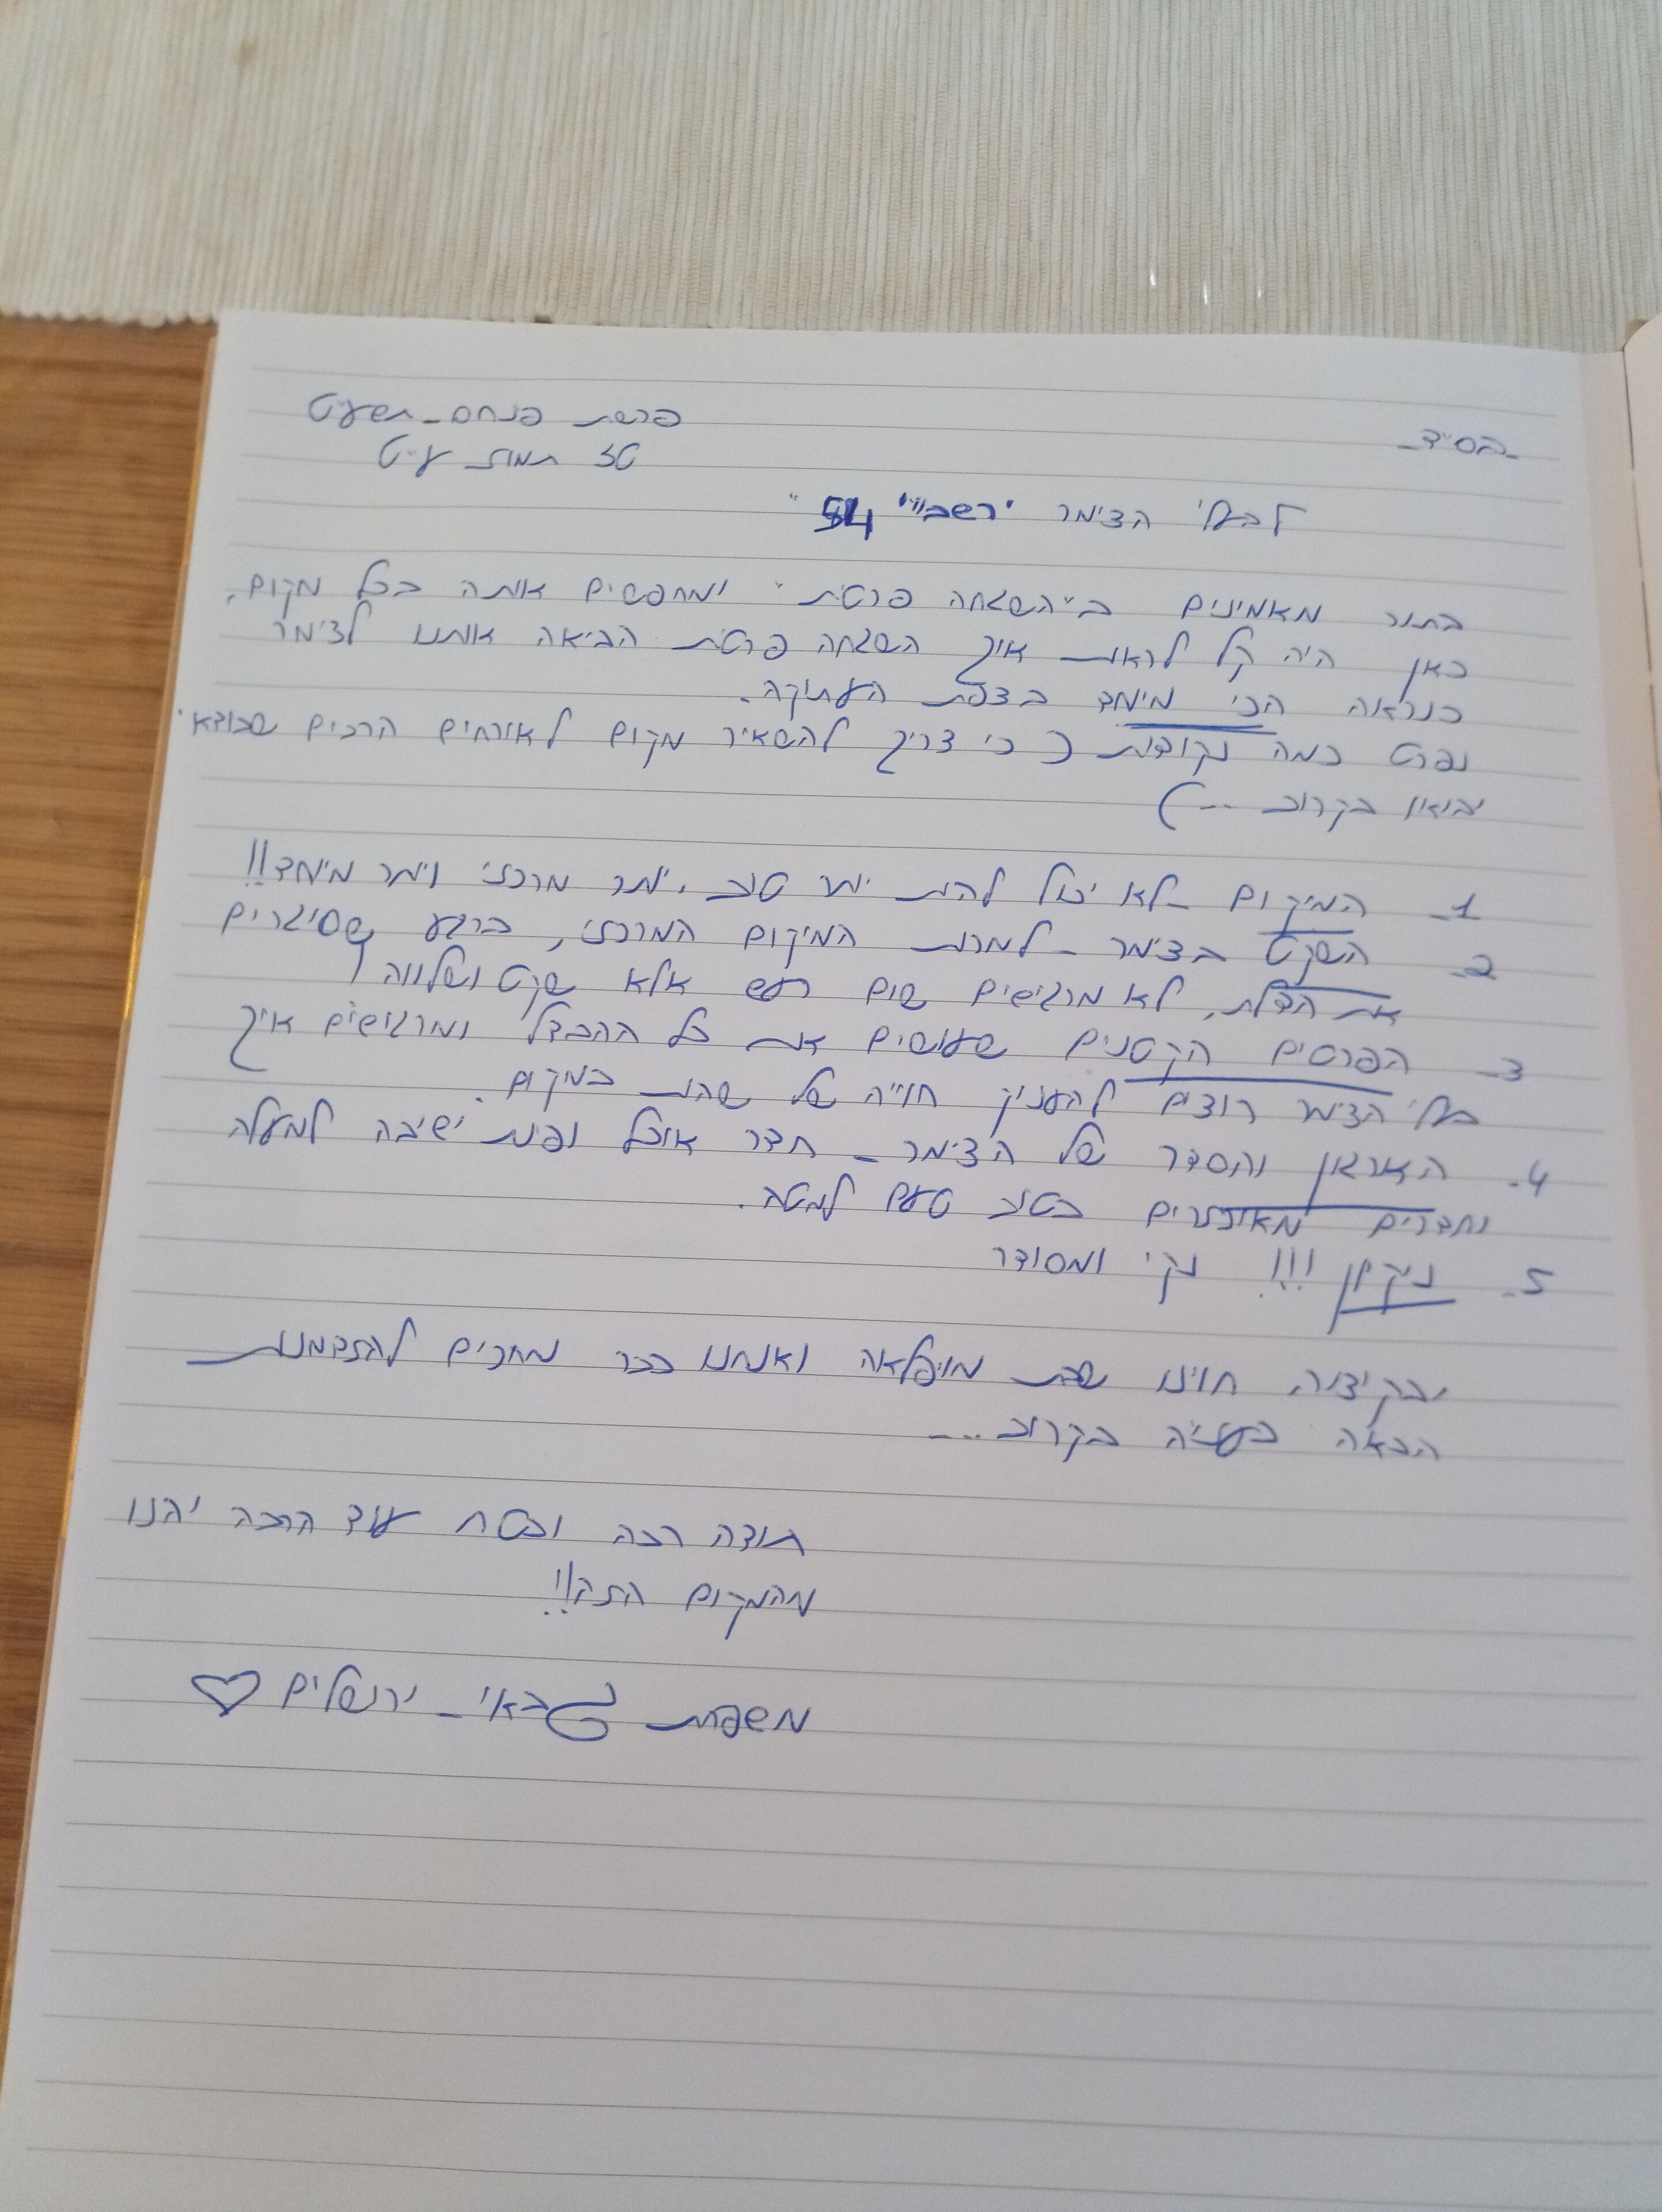 בס"ד
פרשת פנחס - תשע"ט
טז תמוז ע"ט
לבעלי הצימר "רשב"י 54"
בתור מאמינים ב"השגחה פרטית" ומחפשים אותה בכל מקום,
כאן היה קל לראות איך השגחה פרטית הביאה אותנו לצימר
כנראה הכי מיוחד בצפת העתיקה.
נפרט כמה נקודות (כי צריך להשאיר מקום לאורחים הרבים שבודאי
יבואו בקרוב...)
1- המיקום - לא יכול להיות יותר טוב, יותר מרכזי ויותר מיוחד!!
2- השקט בצימר - למרות המיקום המרכזי, ברגע שסוגרים
את הדלת, לא מרגישים שום רעש אלא שקט ושלווה
3- הפרטים הקטנים שעושים את כל ההבדל ומרגישים איך
בעלי הצימר רוצים להעניק חוויה של שהות במקום.
4- הארגון והסדר של הצימר - חדר אוכל ופינת ישיבה למעלה
וחדרים מאובזרים בטוב טעם למטה.
5- ניקיון!!! נקי ומסודר
ובקיצור, חווינו שבת מופלאה ואנחנו כבר מחכים להזדמנות
הבאה בעז"ה בקרוב...
תודה רבה ובטח עוד הרבה יהנו
מהמקום הזה!!
משפחת גבאי - ירושלים ♡